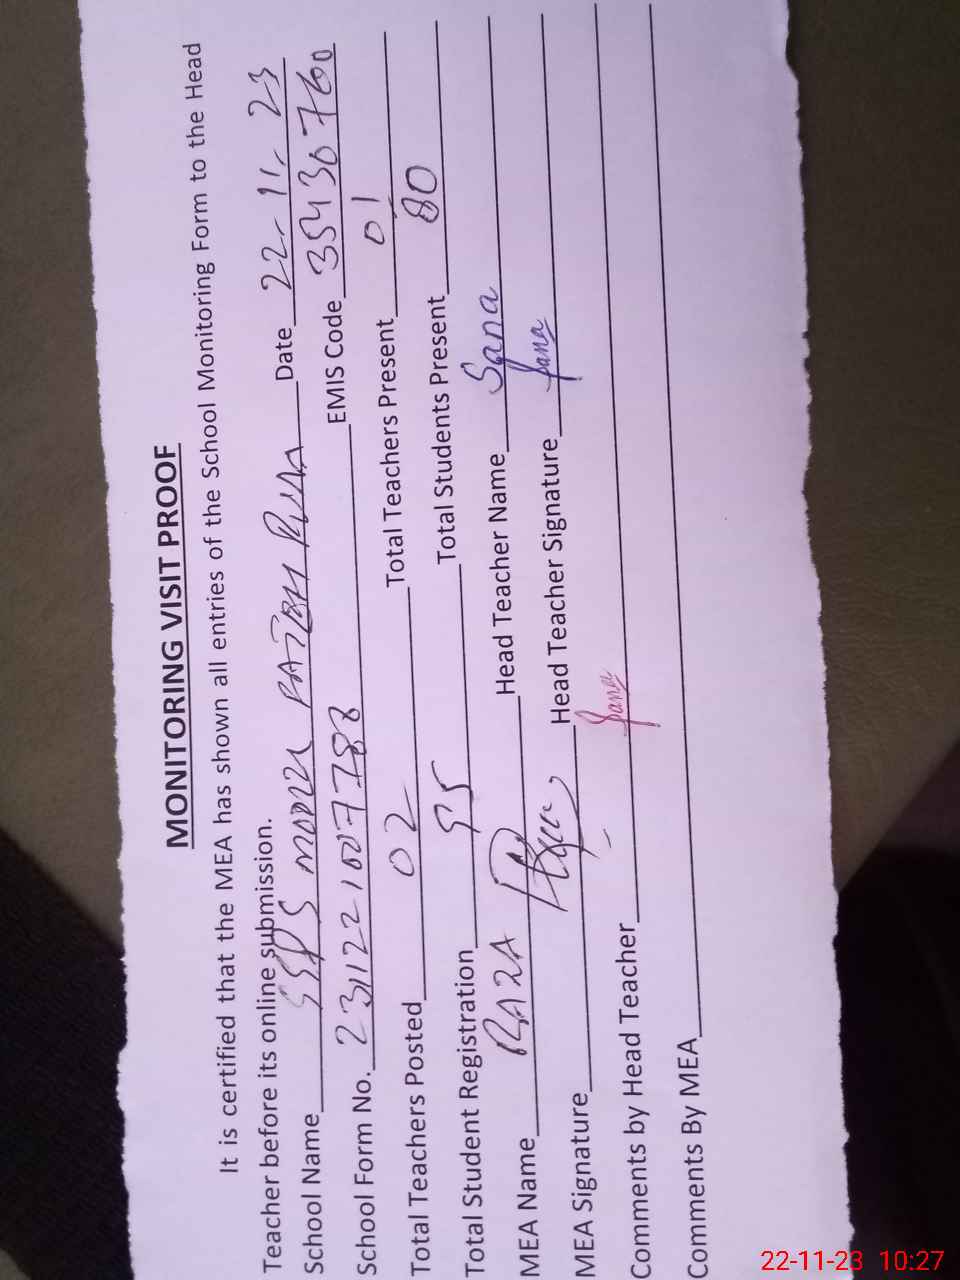 MONITORING VISIT PROOF
It is certified that the MEA has shown all entries of the School Monitoring Form to the Head
Teacher before its online submission.
School Name GGPS MODEL Date 22-11-23
School Form No. 2311221007788 EMIS Code 35430760
Total Teachers Posted 02 Total Teachers Present 01
Total Student Registration 95 Total Students Present 80
MEA Name RAZA Head Teacher Name Sana
MEA Signature Head Teacher Signature Sana
Comments by Head Teacher Sana
Comments By MEA
22-11-23 10:27